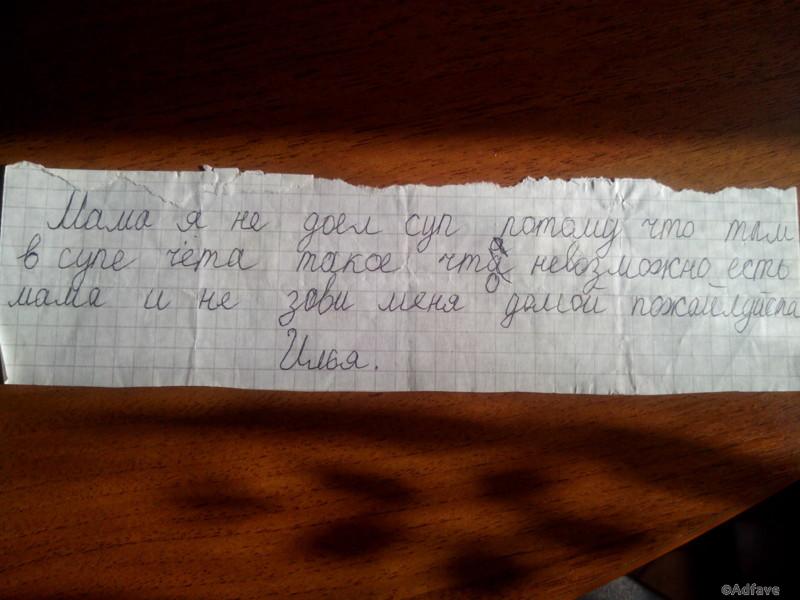 Мама я не доел суп потому что там
в супе чёта такое что невозможно есть
мама и не зови меня домой пожайлдуйста
Илья.
©Adfave